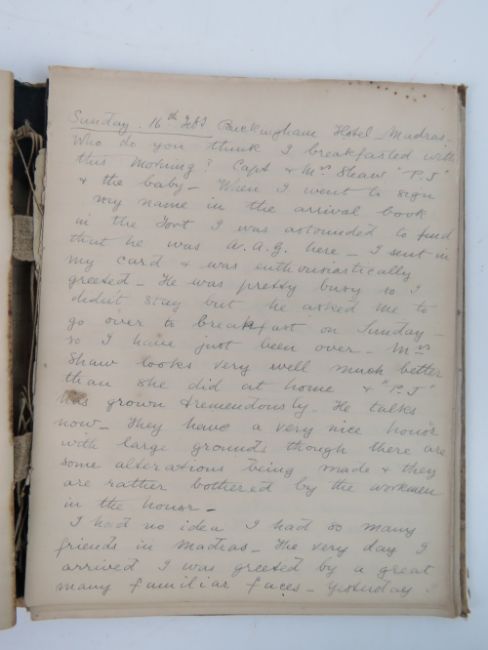 Sunday. 16th Feb Buckingham Hotel Madras.
Who do you think I breakfasted with
this morning? Capt & Mrs Shaw "P.J"
& the baby - When I went to sign
my name in the arrival book
in the Fort I was astounded to find
that he was A.A.G. here - I sent in
my card & was enthusiastically
greeted - He was pretty busy so I
didn't stay but he asked me to
go over to breakfast on Sunday -
so I have just been over - Mrs
Shaw looks very well much better
than she did at home & "P.J"
has grown tremendously - He talks
now - They have a very nice
with large grounds though there are
some alterations being made & they
are rather bothered by the workmen
in the
I had no idea I had so many
friends in Madras - The very day I
arrived I was greeted by a great
many familiar faces - Yesterday